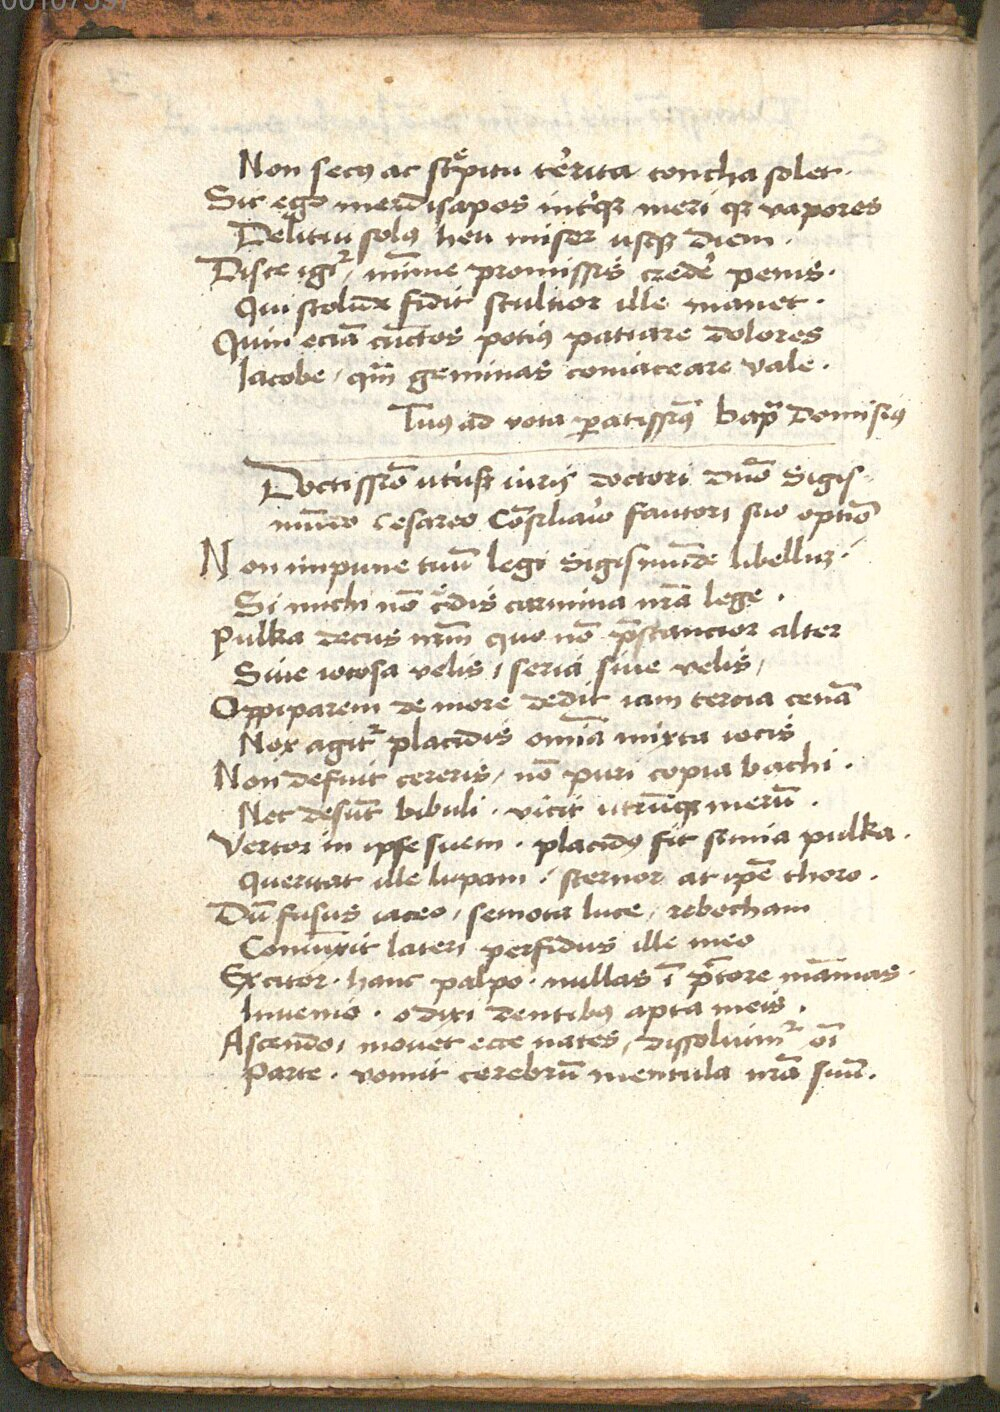 Non secꝰ ac strepitu te̓rita concha solet.
Sic ego meꝛdisapos int̓qꝫ meri qꝫ vapores
Delitui solꝰ heu miser usqꝫ diem.
Disce igit᷑, mīme promissis crede̓ penis.
Qui scolūde fidit stultior ille manet.
Quin eciā cūctos potiꝰ patiare dolores
Iacobe, qm̄ geminas coniaceare vale.
Tuꝰ ad vota ꝑatissimꝰ bap̄ Domisiꝰ
Doctissīo utriusqꝫ iuris doctori dn̄o Sigis-
mūdo Cesareo Cōsiliario fautori suo optīo
Non impune tuū legi Sigismūde libelluꝫ.
Si michi nō credis carmina nr̄a lege.
Pulka decus nr̄m quo nō p̄stancior alter
Siue iocosa velis, seria siue velis,
Oppiparem de more dedit iam tercia cenā
Nox agit᷑ placidis omīa mixta iocis
Non defuit cereris, nō puri copia bachi.
Nec desūt bibuli. vicit utrūqꝫ merū.
Vertor in ipse suem. placidꝰ fit simia pulka.
Queritat ille lupam, sternor at ip̄e thoro.
Dū fusus iaceo, semota luce, rebecham
Coniūxit lateri perfidus ille meo
Excitor. hanc palpo. nullas ī p̄ctore māmas.
Inuenio. o dixi dentibꝰ apta meis.
Ascendo, mouet ecce nates, dissoluim᷑ oī
Parte. vomit cerebrū mentula nr̄a suū.